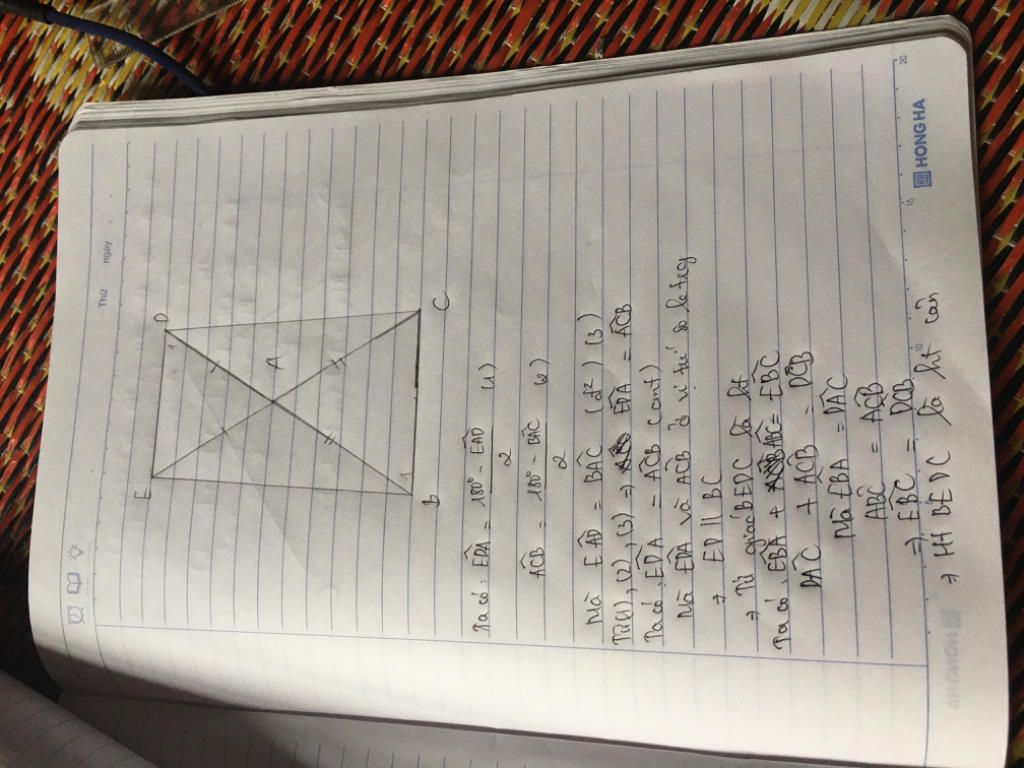 Thứ
ngày
E
D
1
A
B
1
C
Ta có: EDA = 180° - EAD (1)
2
ACB = 180° - BAC (2)
2
Mà EAD = BAC (đ²) (3)
Từ (1), (2), (3) => EDA = ACB
Ta có: EDA = ACB (cmt)
Mà EDA và ACB ở vị trí so le trong
=> ED || BC
=> Tứ giác BEDC là ht
Ta có: EBA + ABC = EBC
DAC + ACB = DCB
Mà EBA = DAC
ABC = ACB
=> EBC = DCB
=> HH BEDC là ht cân
10
15
20
HONG HA